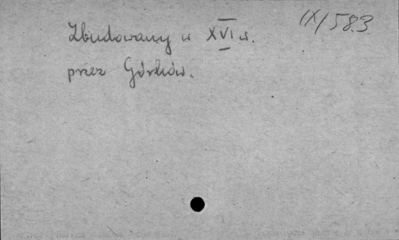 IX/583
Zbudowany w XVI w.
przez Górków.